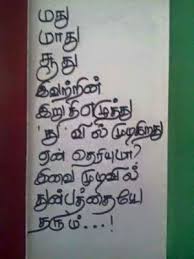 மது
மாது
சூது
இவற்றின்
இறுதிஎழுத்து
'து' வில் முடிகிறது
ஏன் தெரியுமா?
இவை முடிவில்
துன்பத்தையே
தரும்...!